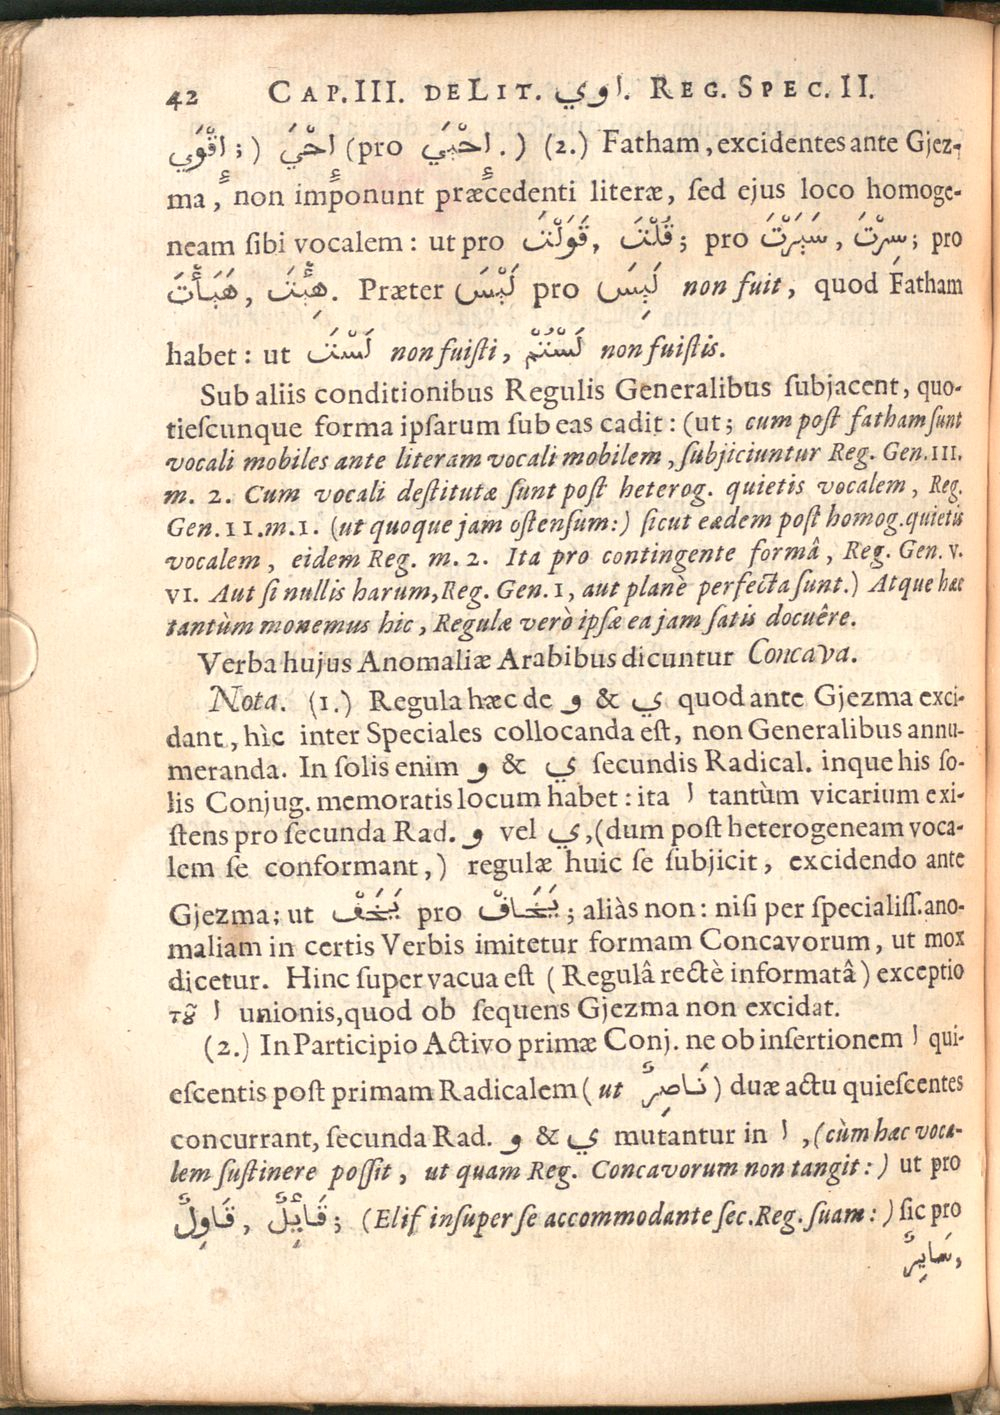 42 CAP.III. DE LIT. اوي. REG. SPEC. II.
إِقْوَي ;) إِحْيَ (pro إِحْيَي .) (2.) Fatham, excidentes ante Gjez-
ma, non imponunt præcedenti literæ, ſed ejus loco homoge-
neam ſibi vocalem: ut pro قَوَلْتَ, قُلْتَ; pro سَيَرْتَ, سِرْتَ; pro
هَيَأْتَ, هِئْتَ. Præter لَيْسَ pro لَيِسَ non fuit, quod Fatham
habet: ut لَسْتَ non fuiſti, لَسْتُمْ non fuiſtis.
Sub aliis conditionibus Regulis Generalibus ſubjacent, quo-
tieſcunque forma ipſarum ſub eas cadit: (ut; cum poſt fatham ſunt
vocali mobiles ante literam vocali mobilem, ſubjiciuntur Reg. Gen. III.
m. 2. Cum vocali deſtitutæ ſunt poſt heterog. quietis vocalem, Reg.
Gen. II. m. 1. (ut quoque jam oſtenſum:) ſicut eædem poſt homog. quietis
vocalem, eidem Reg. m. 2. Ita pro contingente formâ, Reg. Gen. V.
VI. Aut ſi nullis harum, Reg. Gen. I, aut planè perfecta ſunt.) Atque hæc
tantùm monemus hic, Regulæ verò ipſæ ea jam ſatis docuêre.
Verba hujus Anomaliæ Arabibus dicuntur Concava.
Nota. (1.) Regula hæc de و & ي quod ante Gjezma exci-
dant, hìc inter Speciales collocanda eſt, non Generalibus annu-
meranda. In ſolis enim و & ي ſecundis Radical. inque his ſo-
lis Conjug. memoratis locum habet: ita ا tantùm vicarium exi-
ſtens pro ſecunda Rad. و vel ي, (dum poſt heterogeneam voca-
lem ſe conformant,) regulæ huic ſe ſubjicit, excidendo ante
Gjezma; ut يَخَفْ pro يَخَافْ; aliàs non: niſi per ſpecialiſſ. ano-
maliam in certis Verbis imitetur formam Concavorum, ut mox
dicetur. Hinc ſupervacua eſt (Regulâ rectè informatâ) exceptio
τȣ͂ ا unionis, quod ob ſequens Gjezma non excidat.
(2.) In Participio Activo primæ Conj. ne ob inſertionem ا qui-
eſcentis poſt primam Radicalem (ut نَاصِرٌ) duæ actu quieſcentes
concurrant, ſecunda Rad. و & ي mutantur in ا, (cùm hæc voca-
lem ſuſtinere poſſit, ut quam Reg. Concavorum non tangit:) ut pro
قَاوِلٌ, قَائِلٌ; (Elif inſuper ſe accommodante ſec. Reg. ſuam:) ſic pro
سَايِرٌ,